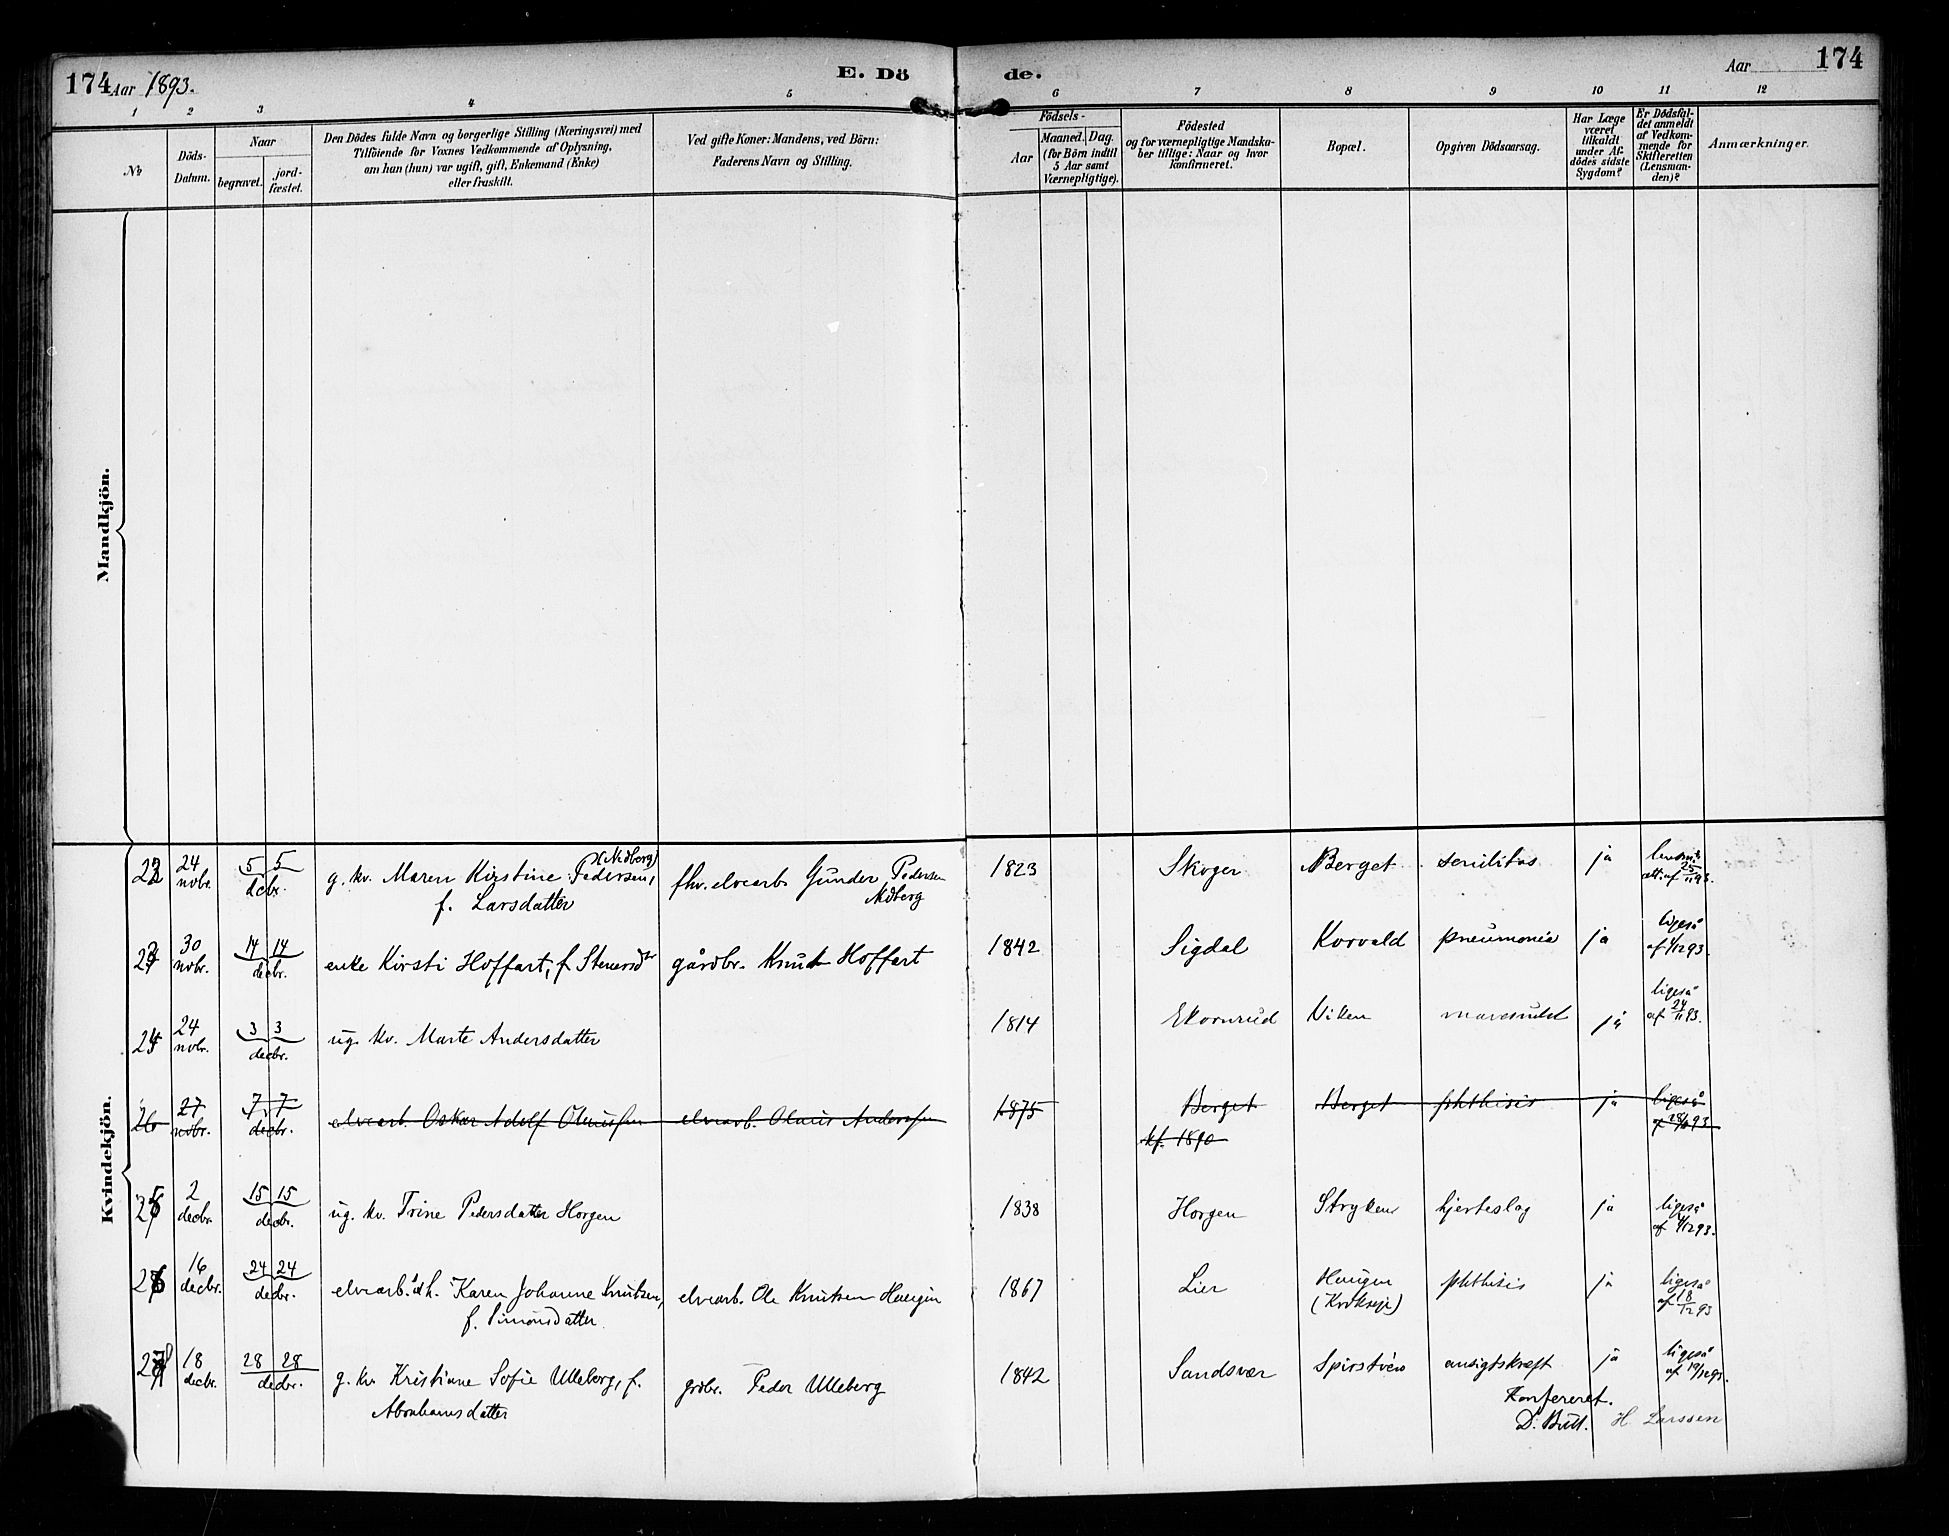 174 Aar 1893.
E. Dö
de.
Aar 174
1 2 3 4 5 6 7 8 9 10 11 12
No
Döds-
Datum.
Naar
begravet.
jord-
fæstet.
Den Dödes fulde Navn og borgerlige Stilling (Næringsvei) med
Tilföiende for Voxnes Vedkommende af Oplysning,
om han (hun) var ugift, gift, Enkemand (Enke)
eller fraskilt.
Ved gifte Koner: Mandens, ved Börn:
Faderens Navn og Stilling.
Födsels-
Aar
Maaned. Dag.
(for Börn indtil
5 Aar samt
Værnepligtige).
Födested
og for værnepligtige Mandska-
ber tillige: Naar og hvor
konfirmeret.
Bopæl.
Opgiven Dödsaarsag.
Har Læge
været
tilkaldt
under Af-
dödes sidste
Sygdom?
Er Dödsfal-
det anmeldt
af Vedkom-
mende for
Skifteretten
(Lensman-
den)?
Anmærkninger.
Mandkjön.
Kvindekjön.
24 novbr. 5 5 decbr. g. kv. Maren Kirstine Pedersen, f. Larsdatter
fhv. elvearb. Gunder Pedersen
1823 Skoger Berget senilitas ja
30 novbr. 14 14 decbr. enke Kirsti Hoffart, f. Stenersdtr gårdbr. Knut Hoffart
1842 Sigdal Korvald pneumonia ja ligeså af 1/12 93.
24 novbr. 3 3 decbr. ug. kv. Marte Andersdatter
1814 Ekornrud Viken ja ligeså af 24/11 93.
26 27 novbr. 7 7 decbr. elvearb. Oskar Adolf Olaussen elvearb. Olaus Anderssen
1875 Berget kf. 1890 Berget phthisis ja ligeså af 28/11 93
2 decbr. 15 15 decbr. ug. kv. Trine Pedersdatter Horgen
1838 Horgen Stryken hjerteslag ja ligeså af 4/12 93.
16 decbr. 24 24 decbr. elvearb. h. Karen Johanne Knutsen, f. Simonsdatter
elvearb. Ole Knutsen Haugen
1867 Lier Haugen phthisis ja ligeså af 18/12 93
18 decbr. 28 28 decbr. g. kv. Kristiane Sofie Ulleberg, f. Abrahamsdatter
grdbr. Peder Ulleberg
1842 Sandsvær ansigtskræft ja ligeså af 19/12 93.
Konfereret.
D. Bull. H. Larssen